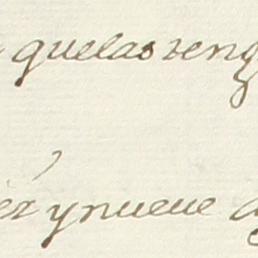 quelas teng
iez ynueue a